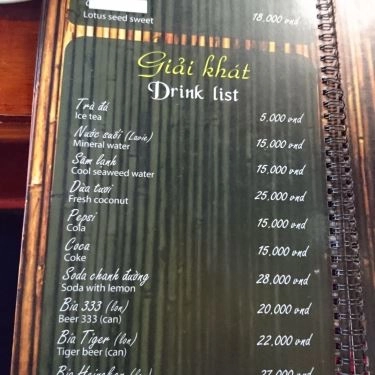 Lotus seed sweet 18.000 vnd
Giải khát
Drink list
Trà đá 5.000 vnd
Ice tea
Nước suối (Lavie) 15,000 vnd
Mineral water
Sâm lạnh 15,000 vnd
Cool seaweed water
Dừa tươi 25,000 vnd
Fresh coconut
Pepsi 15,000 vnd
Cola
Coca 15,000 vnd
Coke
Soda chanh đường 28,000 vnd
Soda with lemon
Bia 333 (lon) 20,000 vnd
Beer 333 (can)
Bia Tiger (lon) 22,000 vnd
Tiger beer (can)
Bia Heineken (lon) 27,000 vnd